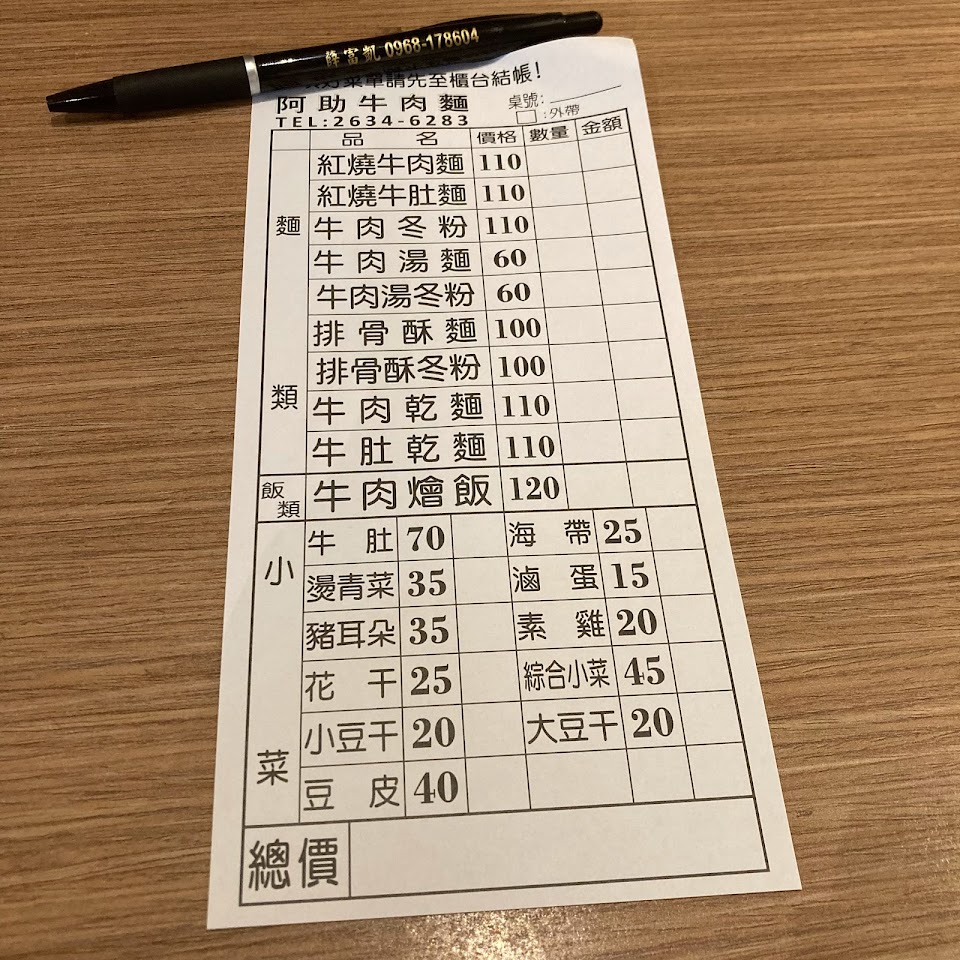 薛富凱 0968-178604
菜單請先至櫃台結帳!
阿助牛肉麵 桌號:
TEL:2634-6283 □:外帶
品名 價格 數量 金額
麵類
紅燒牛肉麵 110
紅燒牛肚麵 110
牛肉冬粉 110
牛肉湯麵 60
牛肉湯冬粉 60
排骨酥麵 100
排骨酥冬粉 100
牛肉乾麵 110
牛肚乾麵 110
飯類
牛肉燴飯 120
小菜
牛肚 70 海帶 25
燙青菜 35 滷蛋 15
豬耳朵 35 素雞 20
花干 25 綜合小菜 45
小豆干 20 大豆干 20
豆皮 40
總價